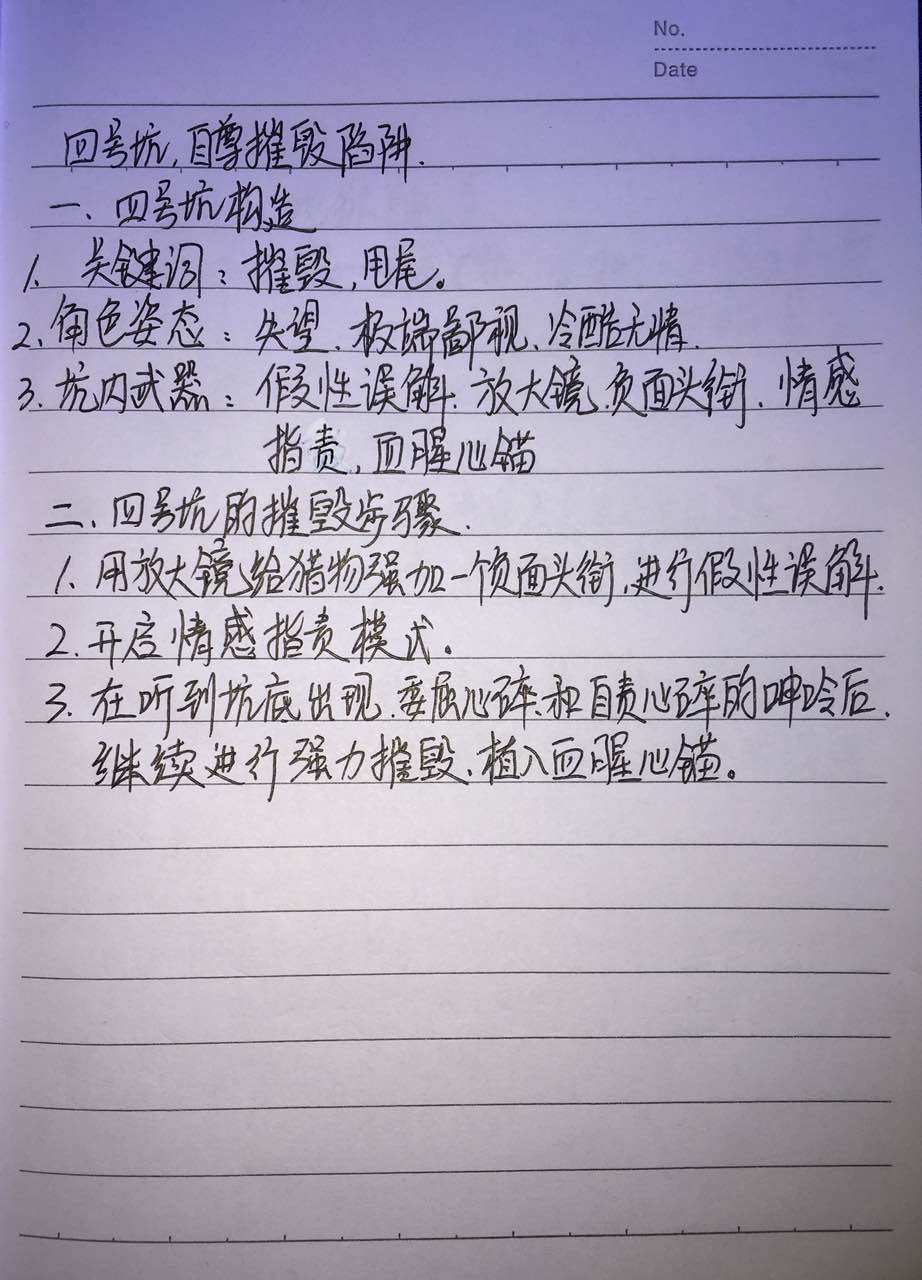 No.
Date
四号坑,自尊摧毁陷阱.
一、四号坑构造
1、关键词：摧毁,甩尾。
2、角色姿态：失望、极端鄙视、冷酷无情.
3、坑内武器：假性误解、放大镜、负面头衔、情感
指责,血腥心锚
二、四号坑的摧毁步骤.
1、用放大镜给猎物强加一个负面头衔,进行假性误解.
2、开启情感指责模式。
3、在听到坑底出现、委屈心碎和自责心碎的呻吟后、
继续进行强力摧毁、植入血腥心锚。